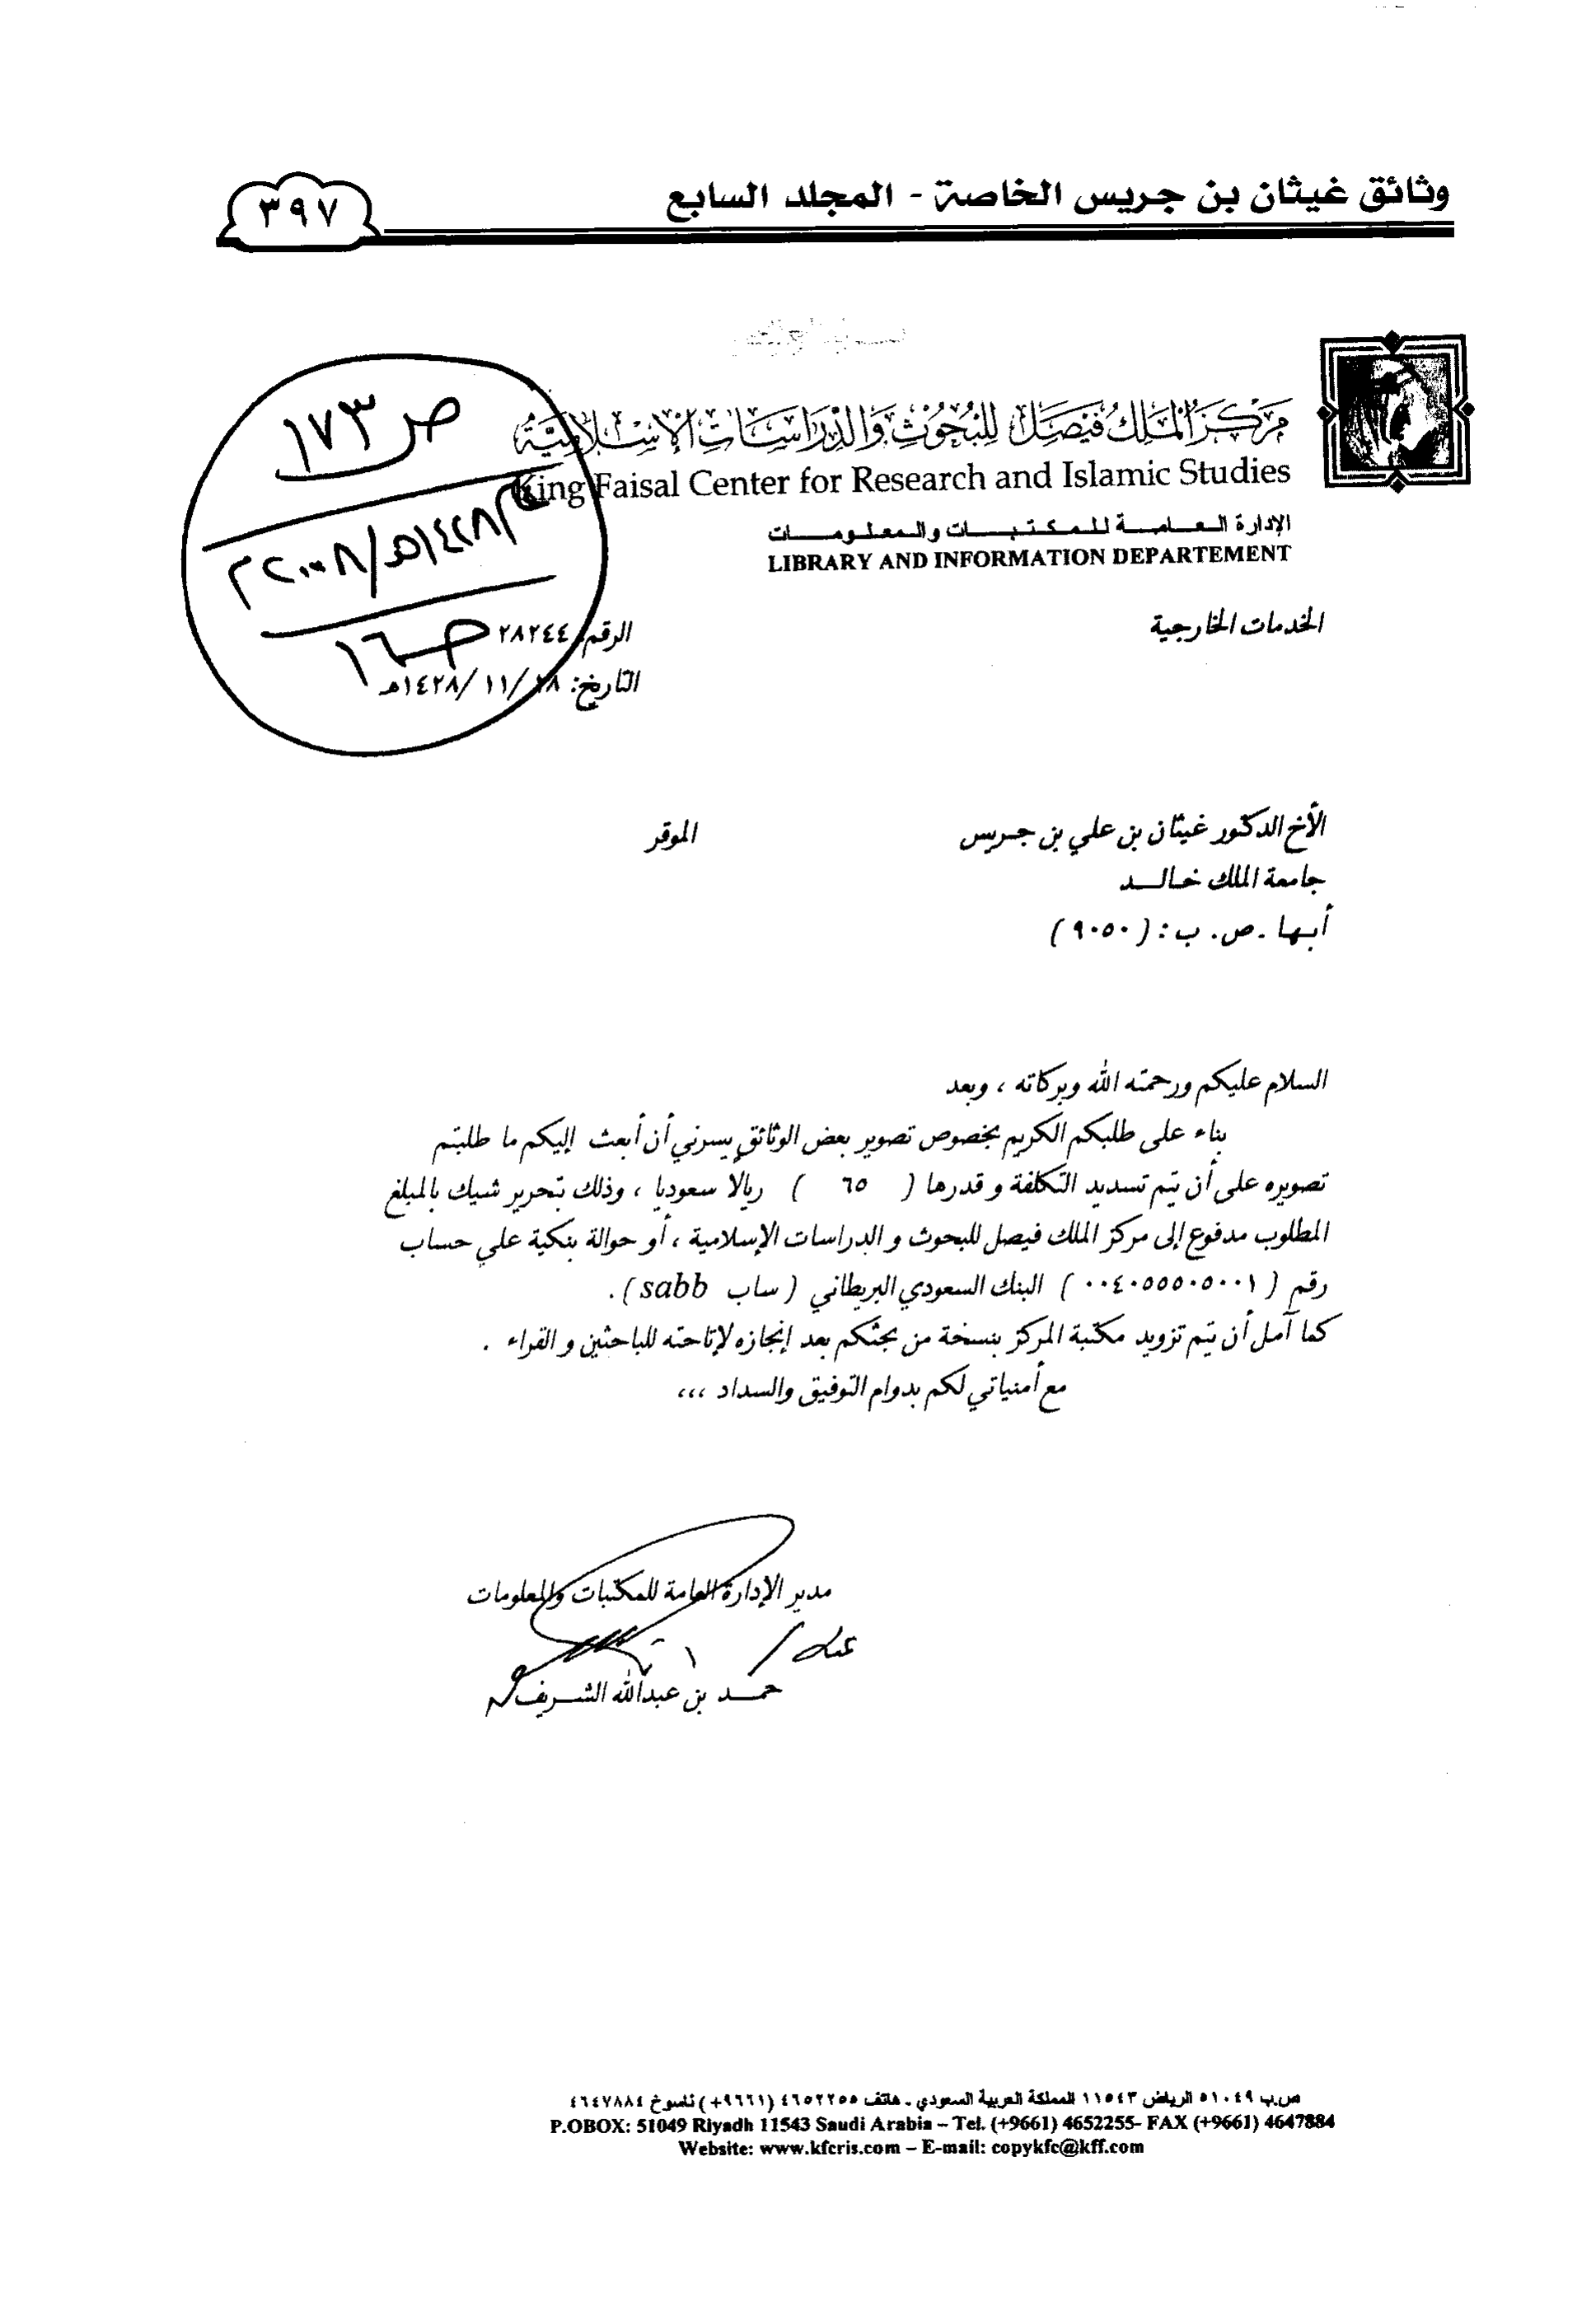 وثائق غيثان بن جريس الخاصة - المجلد السابع
٣٩٧
مركز الملك فيصل للبحوث والدراسات الإسلامية
King Faisal Center for Research and Islamic Studies
الإدارة العامة للمكتبات والمعلومات
LIBRARY AND INFORMATION DEPARTEMENT
ص ١٧٣
١٤٢٨هـ/٢٠٠٨م
الخدمات الخارجية
الرقم: ٢٨٢٤٤
التاريخ: ٢٨/ ١١/ ١٤٢٨هـ
الأخ الدكتور غيثان بن علي بن جريس الموقر
جامعة الملك خالد
أبها - ص. ب : ( ٩٠٥٠ )
السلام عليكم ورحمته الله وبركاته ، وبعد
بناء على طلبكم الكريم بخصوص تصوير بعض الوثائق يسرني أن أبعث إليكم ما طلبتم
تصويره على أن يتم تسديد التكلفة و قدرها ( ٦٥ ) ريالا سعوديا ، وذلك بتحرير شيك بالمبلغ
المطلوب مدفوع إلى مركز الملك فيصل للبحوث و الدراسات الإسلامية ، أو حوالة بنكية علي حساب
رقم ( ٠٠٤٠٥٥٥٠٥٠٠١ ) البنك السعودي البريطاني ( ساب sabb ) .
كما آمل أن يتم تزويد مكتبة المركز بنسخة من بحثكم بعد إنجازه لإتاحته للباحثين و القراء .
مع أمنياتي لكم بدوام التوفيق والسداد ،،،
مدير الإدارة العامة للمكتبات والمعلومات
حمد بن عبدالله الشريف
ص.ب ٥١٠٤٩ الرياض ١١٥٤٣ المملكة العربية السعودي - هاتف ٤٦٥٢٢٥٥ (٩٦٦١+) ناسوخ ٤٦٤٧٨٨٤
P.OBOX: 51049 Riyadh 11543 Saudi Arabia – Tel. (+9661) 4652255- FAX (+9661) 4647884
Website: www.kfcris.com – E-mail: copykfc@kff.com